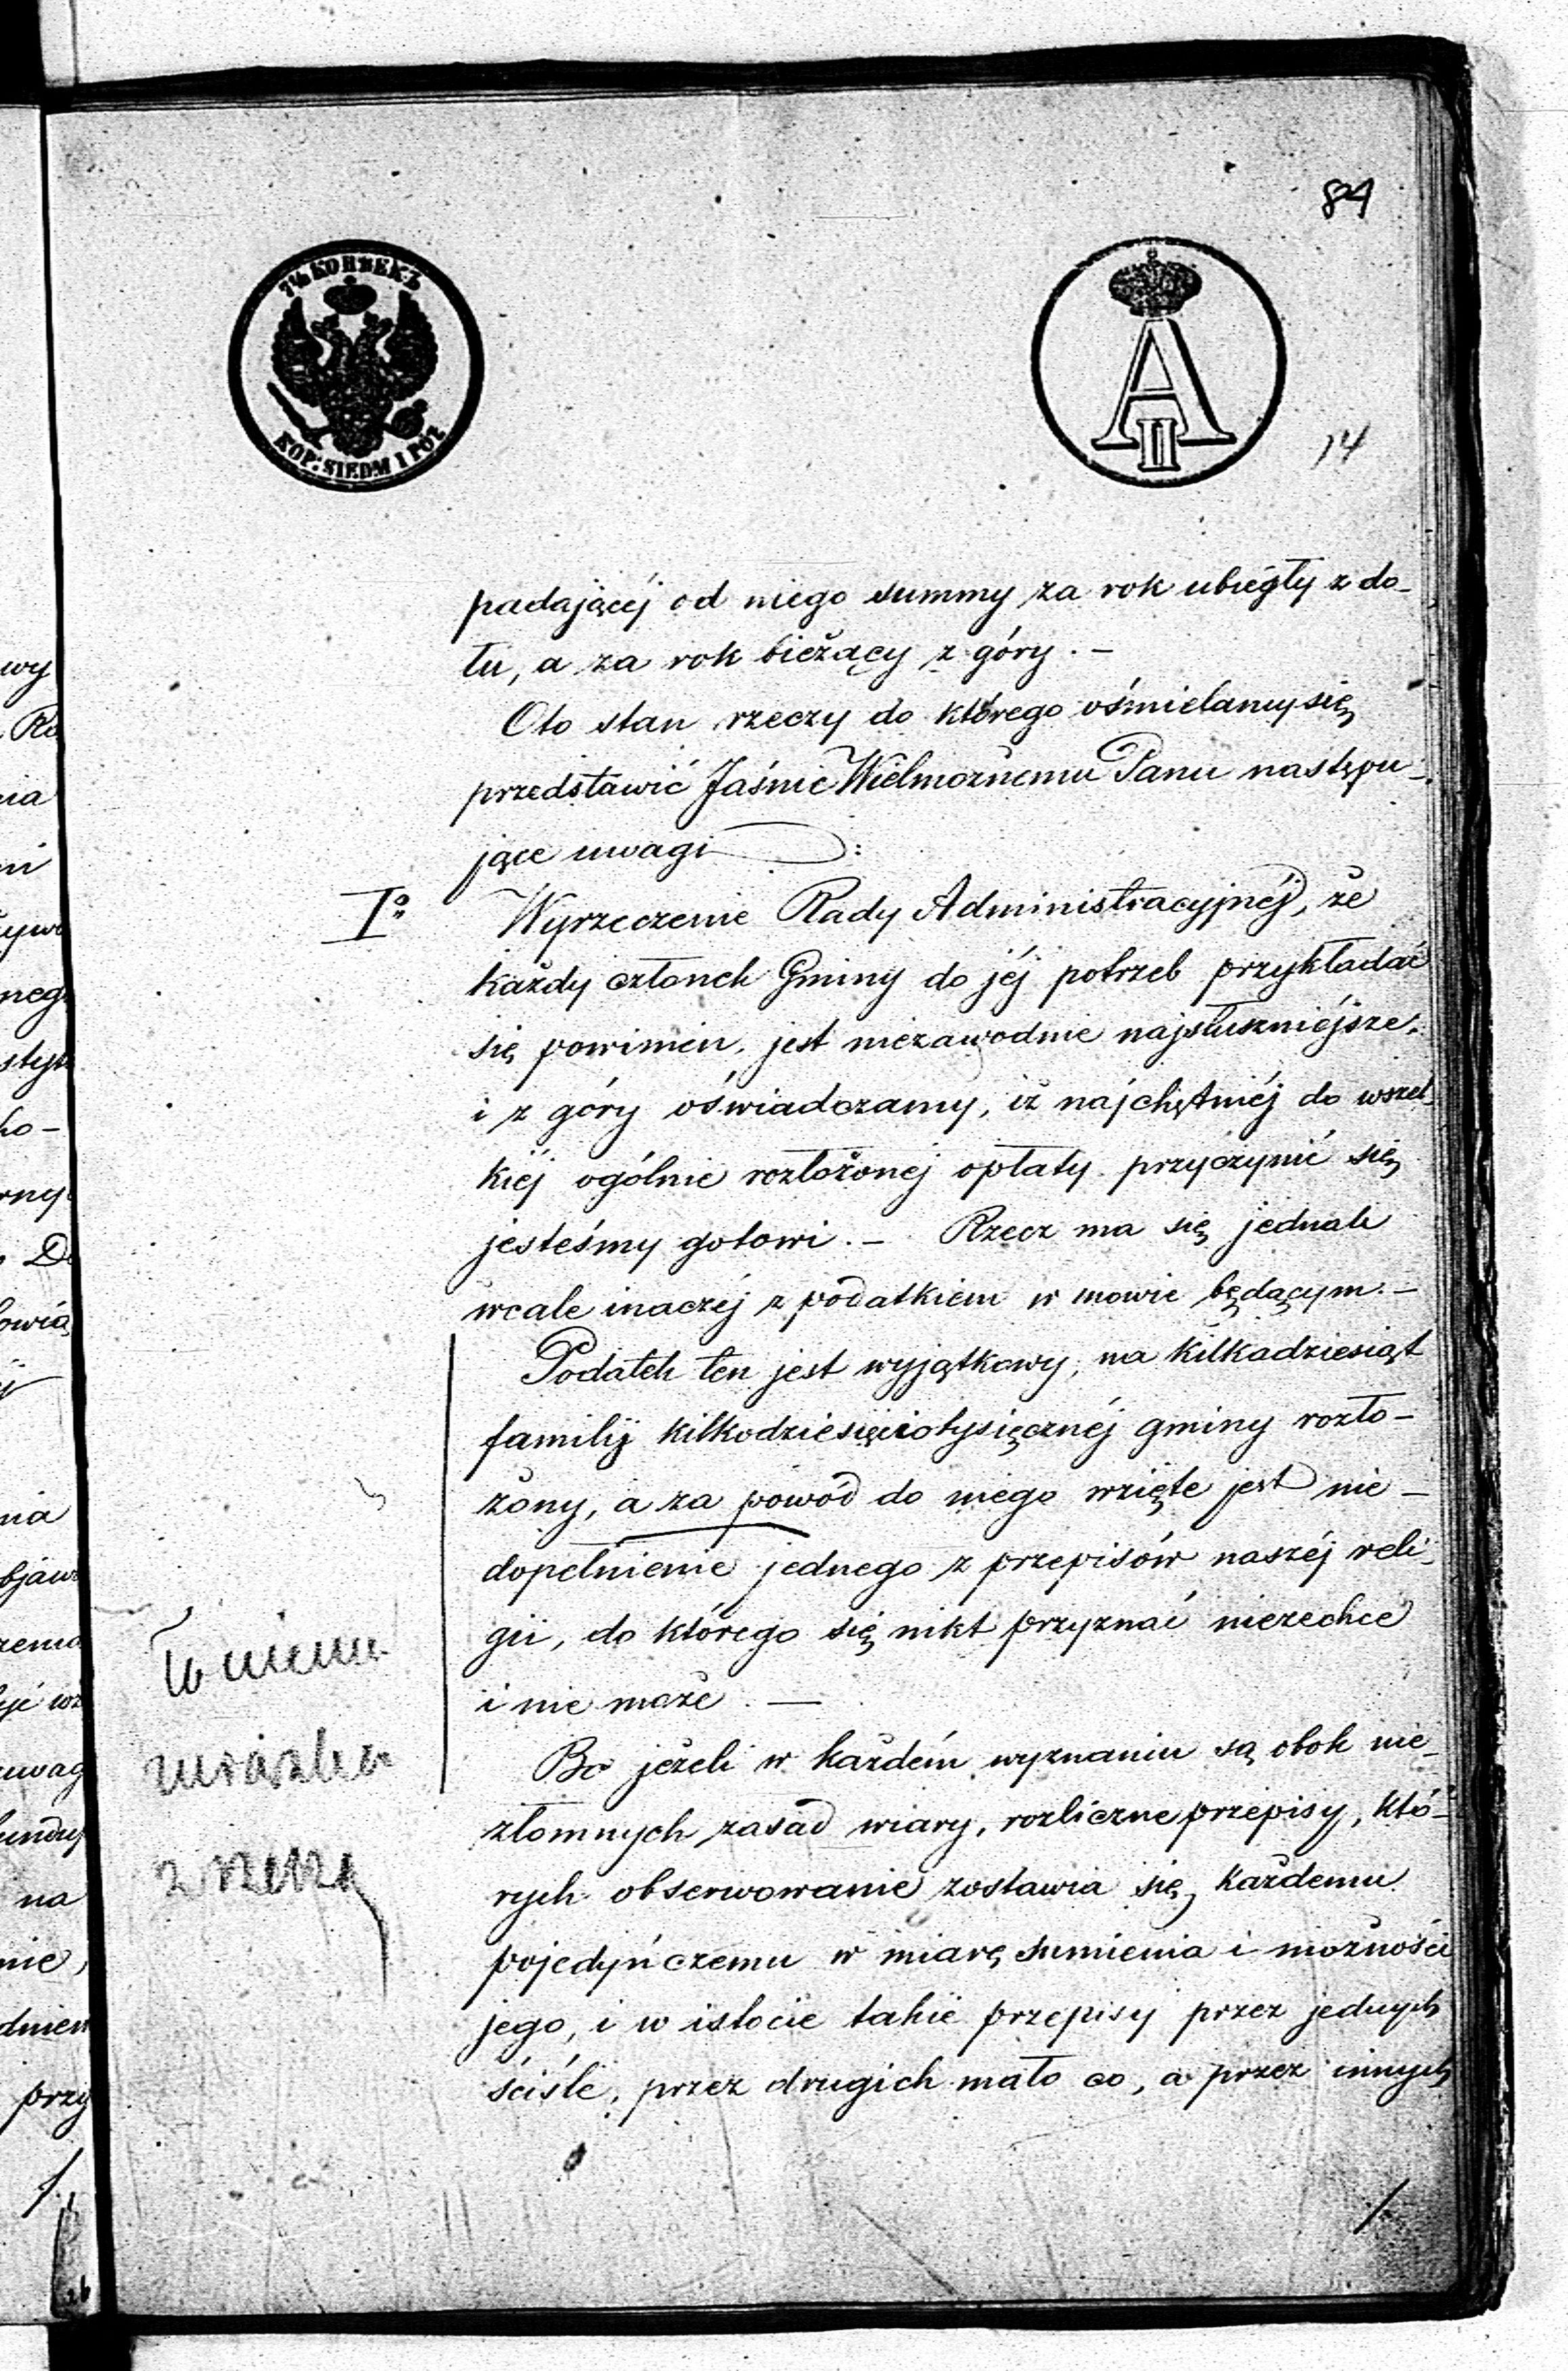 84
7½ КОПѢЕКЪ
KOP: SIEDM I PÓŁ
A II
14
padającéj od niego summy za rok ubiegły z do-
łu, a za rok bieżący z góry. –
Oto stan rzeczy do którego ośmielamy się
przedstawić Jaśnie Wielmożnemu Panu następu-
jące uwagi :
Iº Wyrzeczenie Rady Administracyjnéj, że
każdy członek Gminy do jéj potrzeb przykładać
się powinien, jest niezawodnie najsłuszniéjsze,
i z góry oświadczamy, iż najchętniéj do wszel-
kiéj ogólnie rozłożonéj opłaty przyczynić się
jesteśmy gotowi. – Rzecz ma się jednak
wcale inaczéj z podatkiem w mowie będącym. –
Podatek ten jest wyjątkowy, na kilkadziesiąt
familij kilkodziesięciotysięcznéj gminy rozło-
żony, a za powód do niego wzięte jest nie-
dopełnienie jednego z przepisów naszéj reli-
gii, do którego się nikt przyznać niezechce
i nie może. —
Bo jeżeli w każdém wyznaniu są obok nie-
złomnych zasad wiary, rozliczne przepisy, któ-
rych obserwowanie zostawia się każdemu
pojedyńczemu w miarę sumienia i możności
jego, i w istocie takie przepisy przez jednych
ściśle, przez drugich mało co, a przez innych
z rzeczą
wy
nia
ni
neg
ho-
rny
nia
uwag
na
nie,
przy